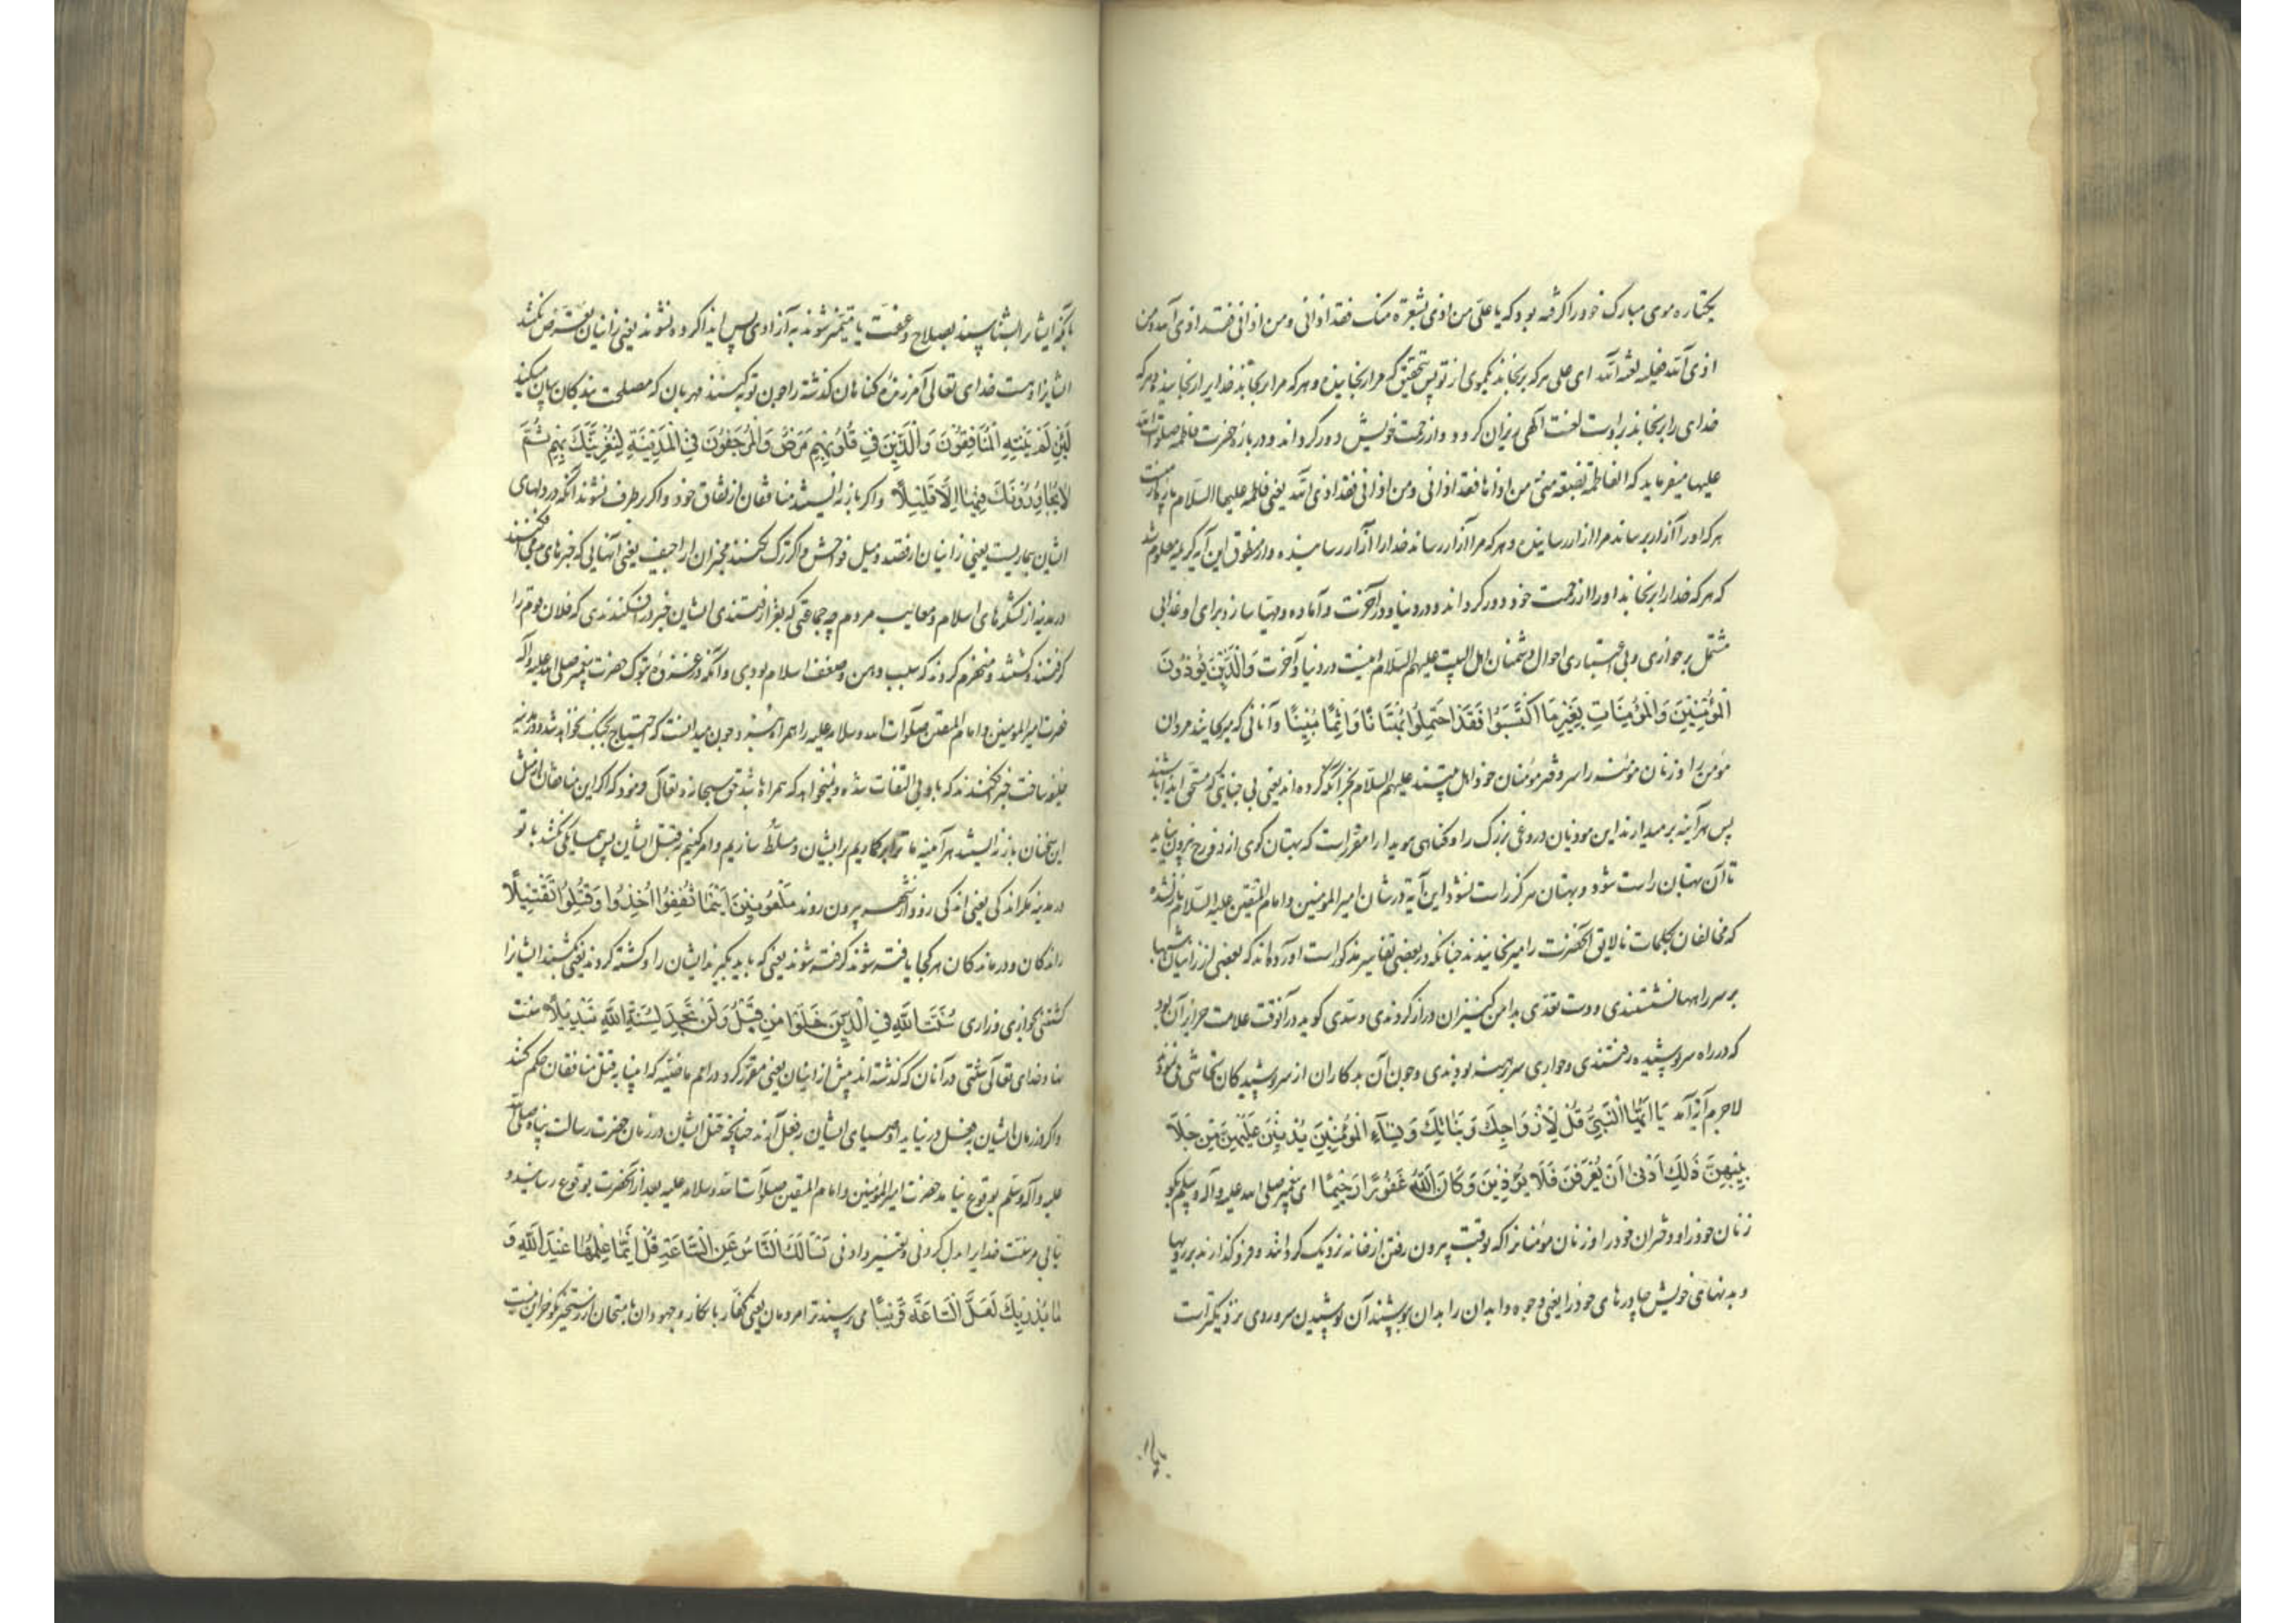 یکتاره موی مبارک خود را گرفته بود که یا علی من اذی بشعرة منک فقد اذانی و من اذانی فقد اذی الله و من
اذی الله فعلیه لعنة الله ای علی هر که برنجاند بیکموی از تو پس بتحقیق که مرا رنجانیده و هر که مرا برنجاند خدایرا رنجانیده و هر که
خدای را برنجاند براوست لعنت الهی ریزان کردد و از رحمت خویش دور کرداند و درباره حضرت فاطمه صلوات الله
علیها میفرماید که الفاطمة بضعة منی من اذاها فقد اذانی و من اذانی فقد اذی الله یعنی فاطمه علیها السلام پاره منست
هر که او را آزار برساند مرا آزار رسانیده و هر که مرا آزار رساند خدا را آزار رسانیده و از منطوق این آیه کریمه معلوم شد
که هر که خدا را برنجاند او را از رحمت خود دور کرداند در دنیا و در آخرت و آماده و مهیا سازد برای او عذابی
مشتمل بر خواری و بی اختیاری احوال دشمنان اهل البیت علیهم السلام اینست در دنیا و آخرت وَالَّذِينَ يُؤْذُونَ
الْمُؤْمِنِينَ وَالْمُؤْمِنَاتِ بِغَيْرِ مَا اكْتَسَبُوا فَقَدِ احْتَمَلُوا بُهْتَانًا وَاِثْمًا مُبِينًا و آنانی که میرنجانند مردان
مؤمن را و زنان مؤمنه را سر و سرور مؤمنان خود اهل بیتند علیهم السلام بغیر آنکه کرده اند یعنی بی جنایتی که مستحق ایذا باشند
پس هر آینه بر میدارند این موذیان دروغی بزرک را و کناهی هویدا را مقرر است که بهتان کوی از دوزخ بیرون نیاید
تا آن بهتان راست شود و بهتان هرکز راست نشود این آیه در شان امیر المؤمنین و امام المتقین علیه السلام نازل شده
که مخالفان بکلمات نالایق آنحضرت را میرنجانیدند چنانکه در بعضی تفاسیر مذکور است آورده اند که بعضی از زانیان شبها
بر سر راهها نشستندی و دست تعدی بدامن کنیزان دراز کردندی و سدی کوید در آنوقت علامت حرایر آن بود
که در راه سر پوشیده رفتندی و جواری سر برهنه بودندی و چون آن بدکاران از سر پوشیدکان تحاشی می نمودند
لاجرم آیه آمد يَا اَيُّهَا النَّبِيُّ قُلْ لِاَزْوَاجِكَ وَبَنَاتِكَ وَنِسَاءِ الْمُؤْمِنِينَ يُدْنِينَ عَلَيْهِنَّ مِنْ جَلَا
بِيبِهِنَّ ذَلِكَ اَدْنَى اَنْ يُعْرَفْنَ فَلَا يُؤْذَيْنَ وَكَانَ اللَّهُ غَفُورًا رَحِيمًا ای پیغمبر صلی الله علیه و آله و سلم بکو
زنان خود را و دختران خود را و زنان مؤمنانرا که بوقت بیرون رفتن از خانه نزدیک کردانند و فرو کذارند بر رویها
و بدنهای خویش چادرهای خود را یعنی وجوه و ابدان را بدان بپوشند آن پوشیدن سر و روی نزدیکتر است
بآنکه ایشانرا بشناسند بصلاح و عفت یا متمیز شوند به آزادی پس ایذا کرده نشوند یعنی زانیان تعرض نکنند
ایشانرا و هست خدای تعالی آمرزنده کناهان کذشته را چون توبه کنند مهربان که مصلحت بندکان بیان میکند
لَئِنْ لَمْ يَنْتَهِ الْمُنَافِقُونَ وَالَّذِينَ فِي قُلُوبِهِمْ مَرَضٌ وَالْمُرْجِفُونَ فِي الْمَدِينَةِ لَنُغْرِيَنَّكَ بِهِمْ ثُمَّ
لَا يُجَاوِرُونَكَ فِيهَا اِلَّا قَلِيلًا و اکر باز نایستند منافقان از نفاق خود و اکر برطرف نشوند آنکه در دلهای
ایشان بیماریست یعنی زانیان از قصد و میل فواحش و اکر ترک نکنند مخبران اراجیف یعنی آنهایی که خبرهای می افکنند
در مدینه از لشکرهای اسلام و معایب مردم چه جماعتی که بغزا رفتندی ایشان خبر در افکندندی که فلان قوم را
کرفتند و کشتند و منهزم کردند که سبب وهن و ضعف اسلام بودی و آنکه در غزوه تبوک حضرت پیغمبر صلی الله علیه و آله
حضرت امیر المؤمنین و امام المتقین صلوات الله و سلامه علیه را همراه نبرد چون میدانست که احتیاج بجنک نخواهد شد و در مدینه
خلیفه ساخت خبر افکندند که با وی بی التفات شده و نمیخواهد که همراه باشد حق سبحانه و تعالی فرمود که اکر این منافقان از مثل
این سخنان باز نایستند هر آینه ما ترا برکماریم بر ایشان و مسلط سازیم و امر کنیم بقتل ایشان پس همسایکی نکنند با تو
در مدینه مکر اندکی یعنی اندکی روز و از شهر بیرون روند مَلْعُونِينَ اَيْنَمَا ثُقِفُوا اُخِذُوا وَقُتِّلُوا تَقْتِيلًا
راندکان و درماندکان هر کجا یافته شوند کرفته شوند یعنی که باید بکیرند ایشان را و کشته کردند یعنی بکشند ایشانرا
کشتنی بخواری و زاری سُنَّةَ اللَّهِ فِي الَّذِينَ خَلَوْا مِنْ قَبْلُ وَلَنْ تَجِدَ لِسُنَّةِ اللَّهِ تَبْدِيلًا سنت
نهاد خدای تعالی سنتی در آنان که کذشته اند پیش از اینان یعنی مقرر کرد در امم ماضیه که انبیا بقتل منافقان حکم کنند
و اکر در زمان ایشان بفعل در نیاید اوصیای ایشان بفعل آرند چنانچه قتل ایشان در زمان حضرت رسالت پناه صلی الله
علیه و آله و سلم بوقوع نیامد حضرت امیر المؤمنین و امام المتقین صلوات الله و سلامه علیه بعد از آنحضرت بوقوع رسانید و
نیابی مر سنت خدایرا بدل کردنی و تغییر دادنی يَسْأَلُكَ النَّاسُ عَنِ السَّاعَةِ قُلْ اِنَّمَا عِلْمُهَا عِنْدَ اللَّهِ وَ
مَا يُدْرِيكَ لَعَلَّ السَّاعَةَ قَرِيبًا می پرسند ترا مردمان یعنی کفار بانکار و جهودان بامتحان از رستخیز بکو جز این نیست